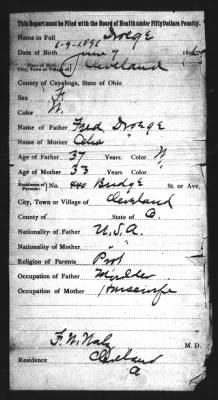 This Department must be Filed with the Board of Health under Fifty Dollars Penalty.
Name in Full Droege
6-9-1891
Date of Birth June 9 18
Place of Birth Cleveland
City, Town or Village of
County of Cuyahoga, State of Ohio
Sex F.
Color W.
Name of Father Fred Droege
Name of Mother Celia "
Age of Father 37 Years. Color W
Age of Mother 33 Years. Color "
Residence of Parents No. 440 Bridge St. or Ave,
City, Town or Village of Cleveland
County of State of O.
Nationality of Father U.S.A.
Nationality of Mother "
Religion of Parents Prot
Occupation of Father Moulder
Occupation of Mother Housewife
F. W. M. D.
Residence Cleveland
O